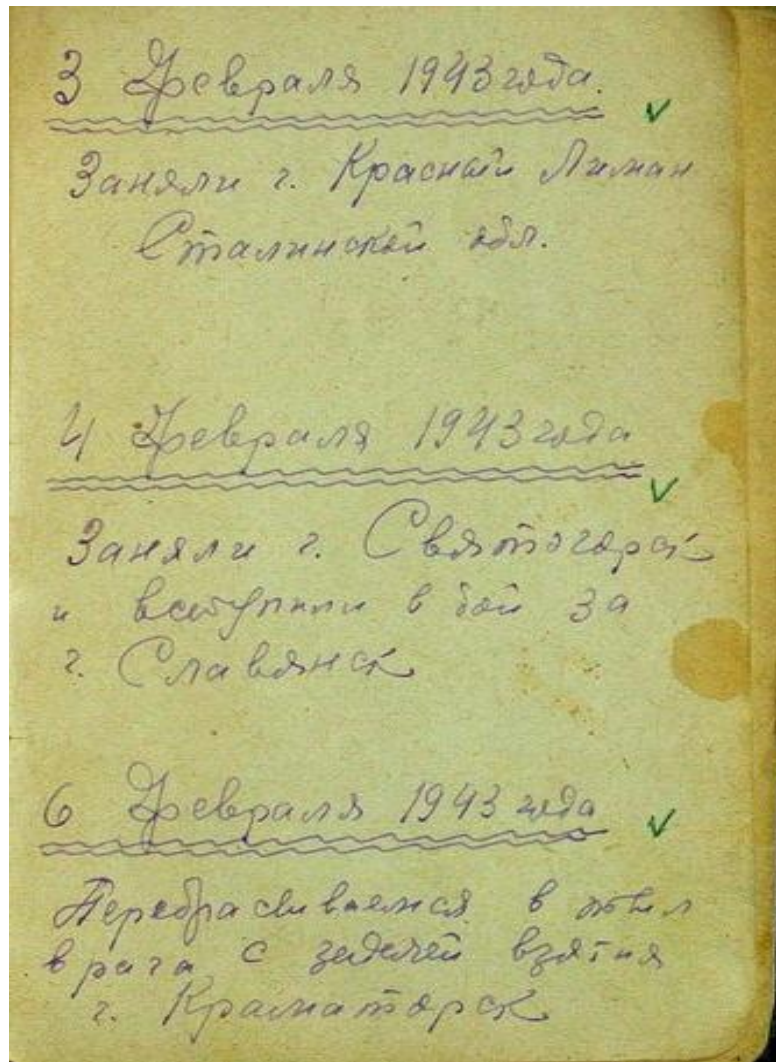 3 Февраля 1943 года.
Заняли г. Красный Лиман
Сталинской обл.
4 Февраля 1943 года
Заняли г. Святогорск
и вступили в бой за
г. Славянск
6 Февраля 1943 года
Перебрасываемся в тыл
врага с задачей взятия
г. Краматорск